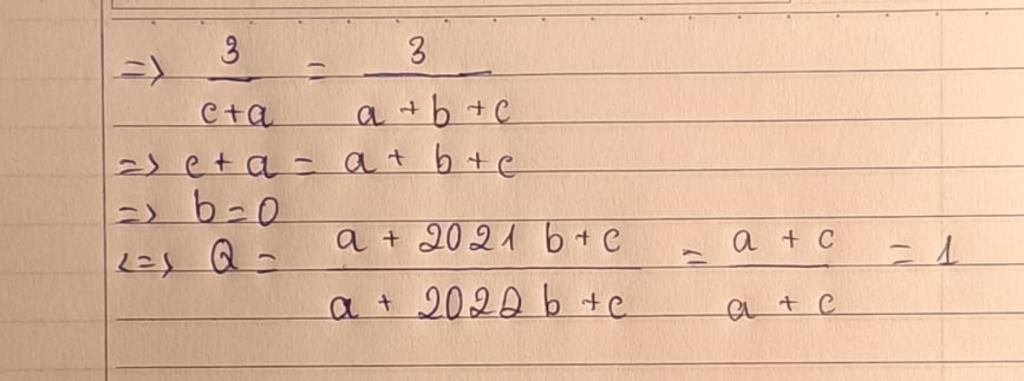 => 3/(c+a) = 3/(a+b+c)
=> c+a = a+b+c
=> b=0
<=> Q = (a+2021b+c)/(a+2022b+c) = (a+c)/(a+c) = 1